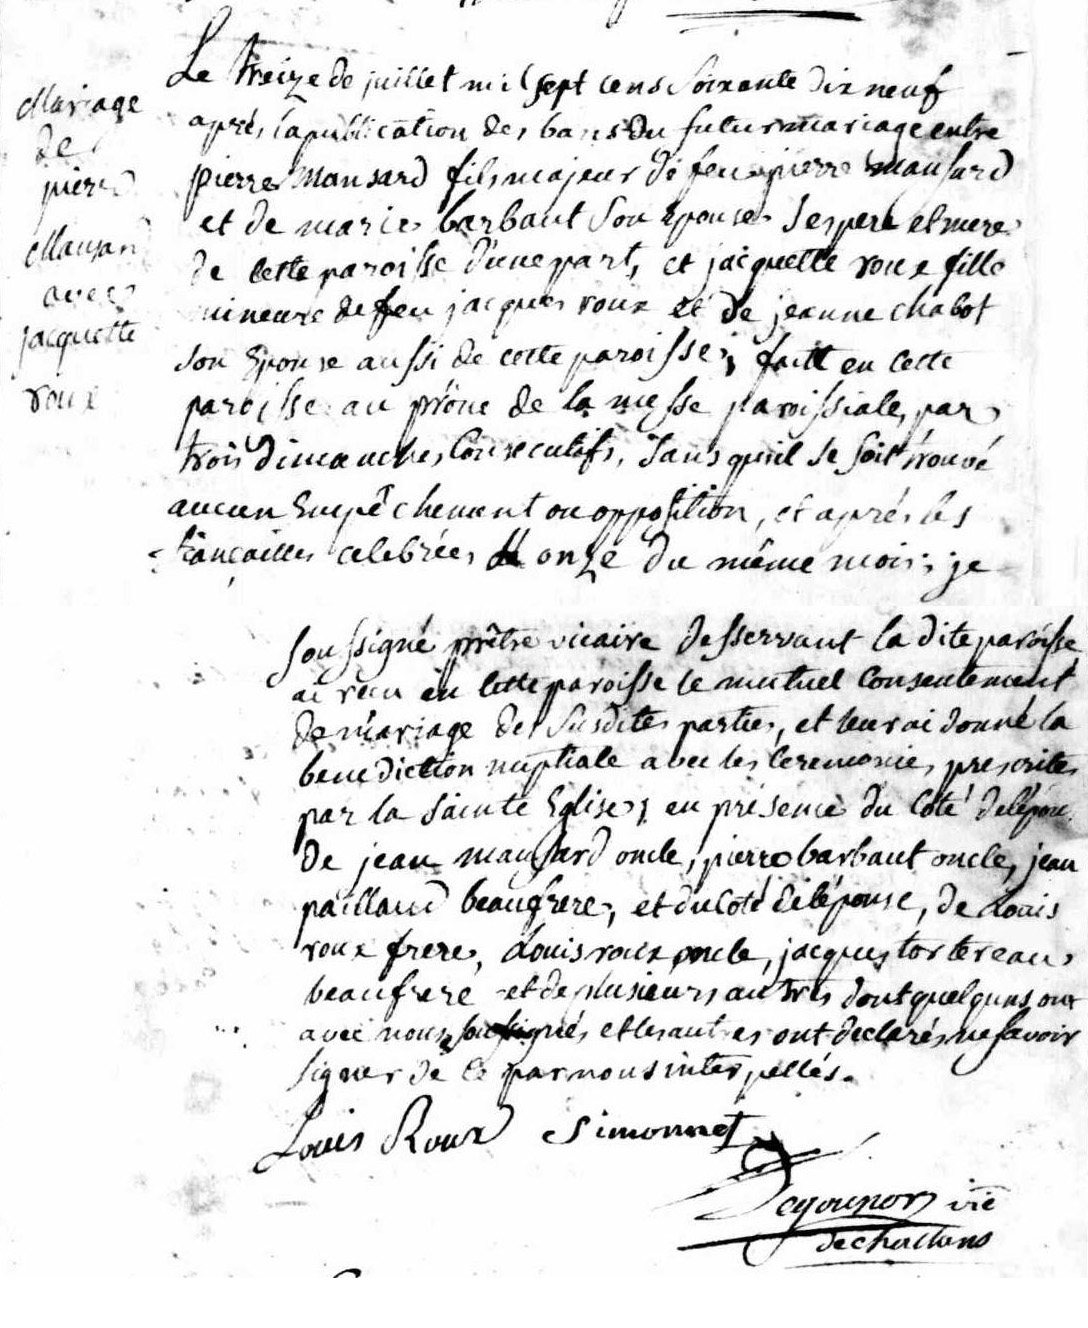 Mariage
de
pierre
Mansard
avec
jacquette
roux
Le treize de juillet mil sept cens soixante dix neuf
après la publication des bans du futur mariage entre
pierre Mansard fils majeur de feu pierre mansard
et de marie barbaut son Epouse ses pere et mere
de cette paroisse d'une part, et jacquette roux fille
mineure de feu jacques roux et de jeanne chabot
son Epouse aussi de cette paroisse, fait en cette
paroisse au prône de la messe paroissiale, par
trois dimanches Consecutifs, sans quil se soit trouvé
aucun Empêchement ou opposition, et après les
fiançailles celebrées le onze du même mois; je
soussigné prêtre vicaire desservant la dite paroisse
ai reçu en cette paroisse le mutuel Consentement
de mariage des susdites parties, et leur ai donné la
benediction nuptiale avec les Ceremonies prescrites
par la sainte Eglise, en présence du Coté de lépoux
de jean mansard oncle, pierre barbaut oncle, jean
paillaud beaufrere, et du Coté de lépouse, de Louis
roux frere, Louis roux oncle, jacques tortereau
beaufrere et de plusieurs autres dont quelquns ont
avec nous soussignés et les autres ont declarés ne savoir
signer de Ce par nous interpellés.
Louis Roux Simonnet
vic
de challans